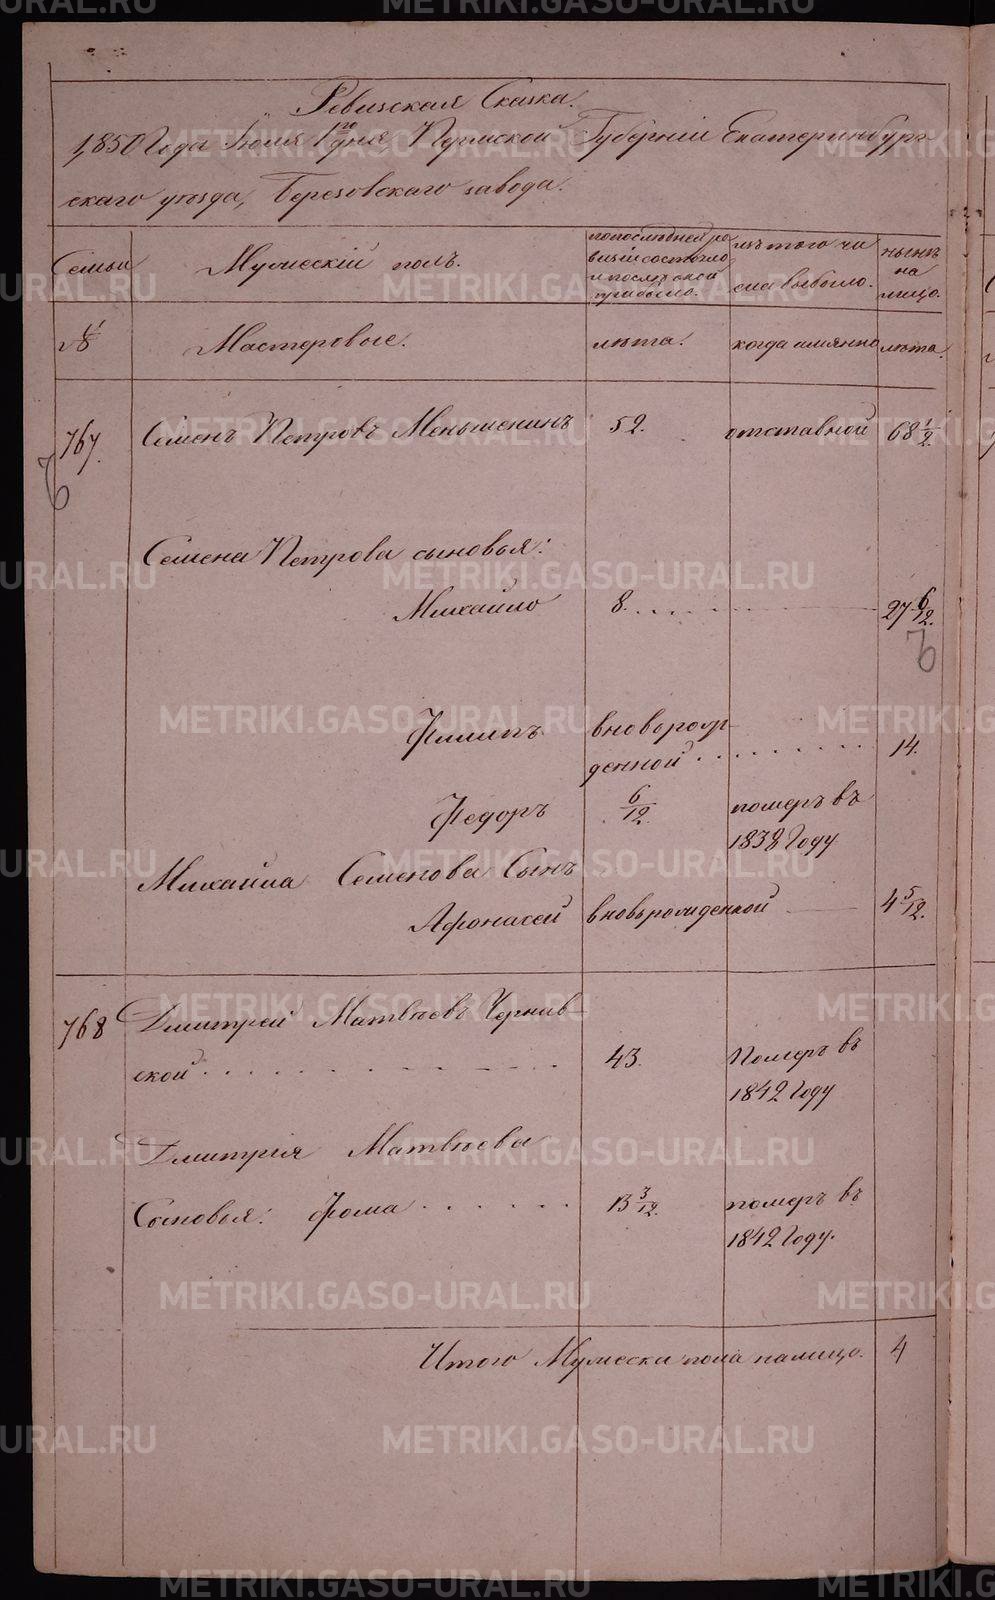 Ревизская Сказка.
1850 Года Июля 1го дня, Пермской Губерніи Екатеринбург-
скаго уѣзда, Березовскаго завода.
Семьи
Мужескій полъ.
по последней ре
визіи состояло
и после оной
прибыло.
изъ того чи
сла выбыло.
нынѣ
на
лицо.
№
Мастеровые.
лѣта.
когда имянно
лѣта.
767.
Семенъ Петровъ Меньшенинъ
52.
отставной
68 1/2.
6
Семена Петрова сыновья:
Михайло
8.
27 6/12.
6
Филипъ
вноворож-
денной
14.
Федоръ
6/12.
померъ въ
1838 Году
Михаила Семенова Сынъ
Афонасей
вноворожденной
4 5/12.
768
Дмитрей Матвѣевъ Чернив-
ской
43.
Померъ въ
1842 Году
Дмитрія Матвѣева
Сыновья: Фома
13 3/12.
померъ въ
1842 Году.
Итого Мужеска пола налицо.
4
METRIKI.GASO-URAL.RU